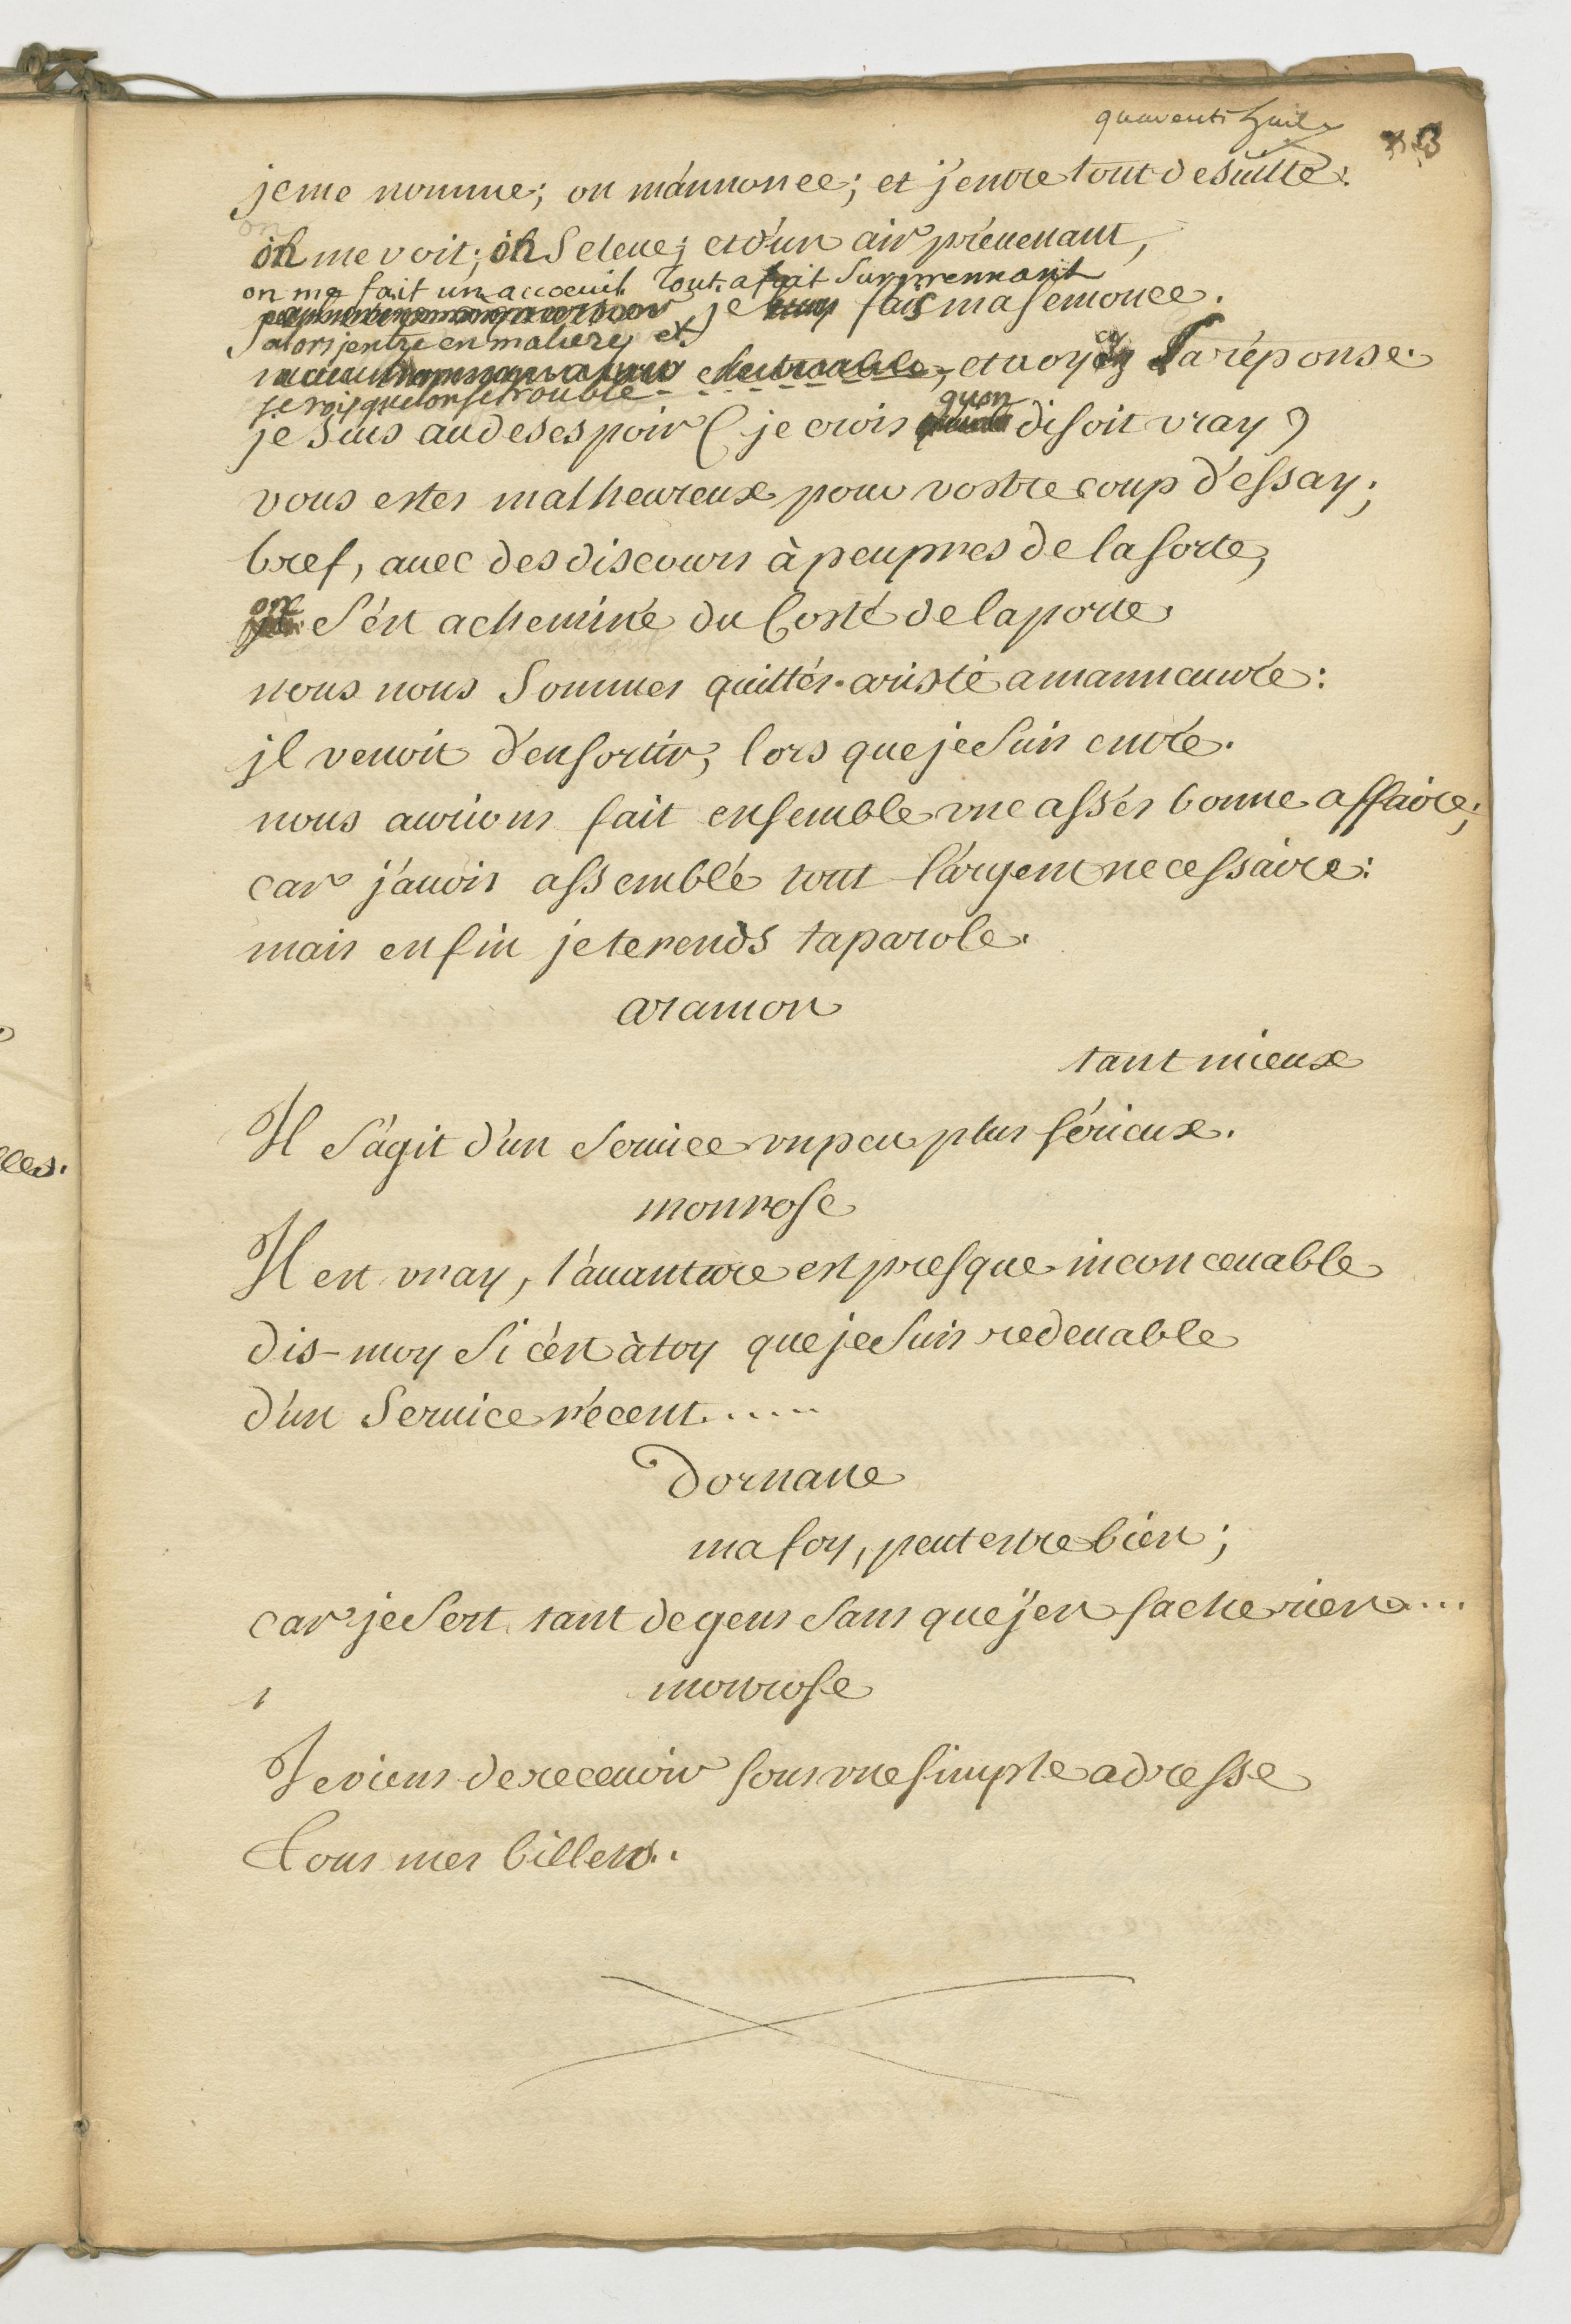 quarente huit
jeme nomme; on m'annonce; et j'entre tout de suitte.
on me voit; on Seleue; et d'un air préuenant,
on me fait un accoeuil tout a fait Surprennant
je fais ma semonce.
alors jentre en matiere et
et voyez La réponse.
je vois que lon se trouble
quon
je Suis au desespoir ( je crois disoit vray )
vous estes malheureux pour vostre coup d'essay;
bref, auec des discours à peu pres de la sorte,
on S'est acheminé du Costé de la porte
nous nous Sommes quittés. ariste a manncuuré:
jl venoit d'en sortir, lors que je Suis entré.
nous aurions fait ensemble vne assés bonne affaire;
car j'auois assemblé tout l'argent necessaire:
mais enfin je te rends ta parole.
aramon
tant mieux
Il S'agit d'un Seruice vn peu plus sérieux.
monrose
Il est vray, l'auanture est presque inconceuable
dis-moy Si c'est à toy que je Suis redeuable
d'un Seruice récent......
Dornane
ma foy, peut estre bien;
car je Sert tant de gens Sans que j'en sache rien....
monrose
Je viens de receuoir sous vne simple adresse
tous mes billets..